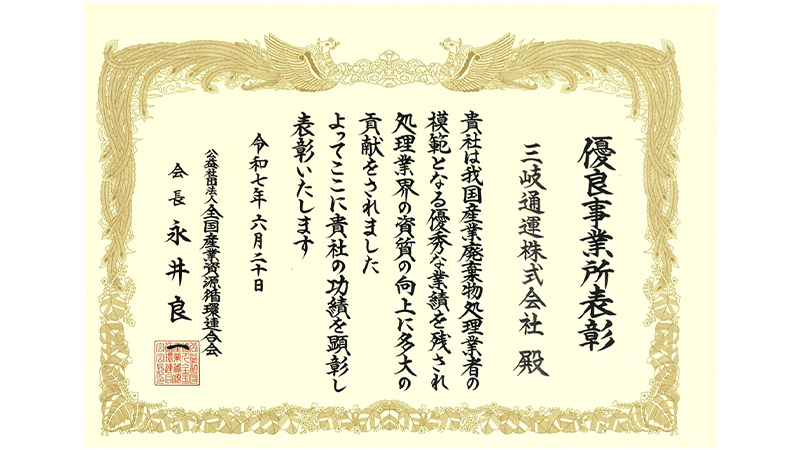 優良事業所表彰
三岐通運株式会社 殿
貴社は我国産業廃棄物処理業者の
模範となる優秀な業績を残され
処理業界の資質の向上に多大の
貢献をされました
よってここに貴社の功績を顕彰し
表彰いたします
令和七年六月二十日
公益社団法人全国産業資源循環連合会
会長 永井良一